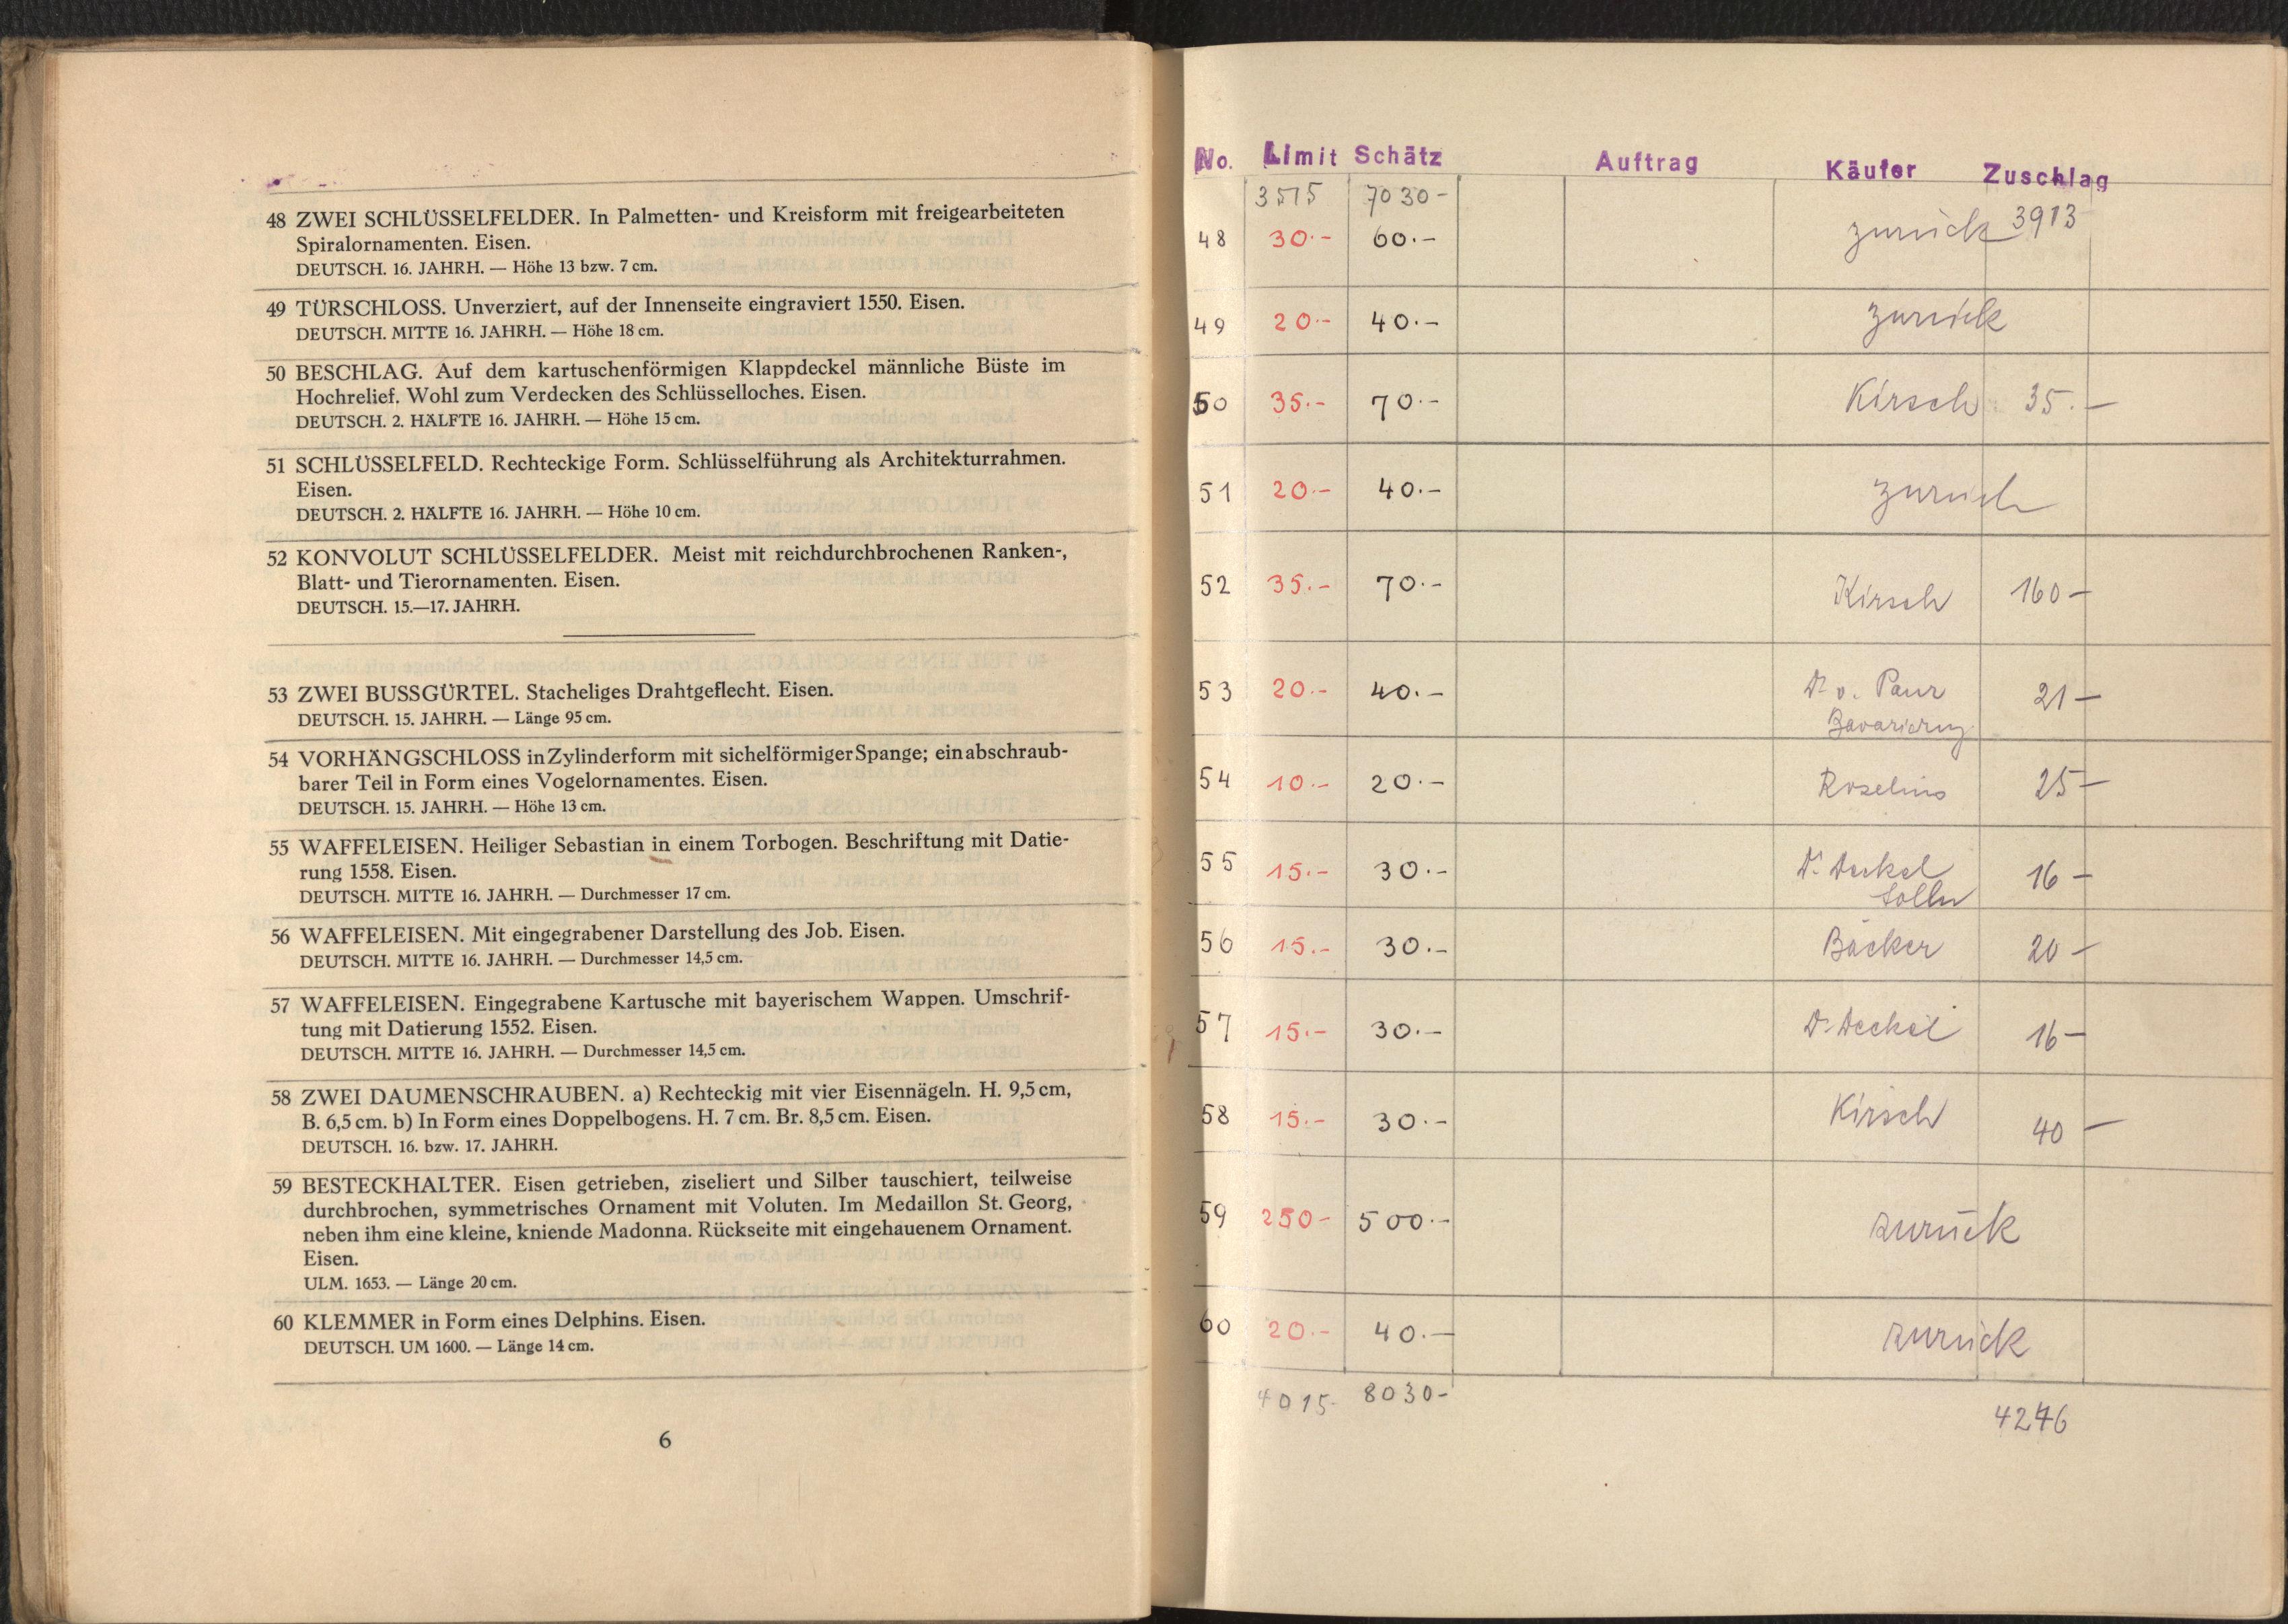 48 ZWEI SCHLÜSSELFELDER. In Palmetten- und Kreisform mit freigearbeiteten
Spiralornamenten. Eisen.
DEUTSCH. 16. JAHRH. — Höhe 13 bzw. 7 cm.
49 TÜRSCHLOSS. Unverziert, auf der Innenseite eingraviert 1550. Eisen.
DEUTSCH. MITTE 16. JAHRH. — Höhe 18 cm.
50 BESCHLAG. Auf dem kartuschenförmigen Klappdeckel männliche Büste im
Hochrelief. Wohl zum Verdecken des Schlüsselloches. Eisen.
DEUTSCH. 2. HÄLFTE 16. JAHRH. — Höhe 15 cm.
51 SCHLÜSSELFELD. Rechteckige Form. Schlüsselführung als Architekturrahmen.
Eisen.
DEUTSCH. 2. HÄLFTE 16. JAHRH. — Höhe 10 cm.
52 KONVOLUT SCHLÜSSELFELDER. Meist mit reichdurchbrochenen Ranken-,
Blatt- und Tierornamenten. Eisen.
DEUTSCH. 15.—17. JAHRH.
53 ZWEI BUSSGÜRTEL. Stacheliges Drahtgeflecht. Eisen.
DEUTSCH. 15. JAHRH. — Länge 95 cm.
54 VORHÄNGSCHLOSS in Zylinderform mit sichelförmiger Spange; ein abschraub-
barer Teil in Form eines Vogelornamentes. Eisen.
DEUTSCH. 15. JAHRH. — Höhe 13 cm.
55 WAFFELEISEN. Heiliger Sebastian in einem Torbogen. Beschriftung mit Datie-
rung 1558. Eisen.
DEUTSCH. MITTE 16. JAHRH. — Durchmesser 17 cm.
56 WAFFELEISEN. Mit eingegrabener Darstellung des Job. Eisen.
DEUTSCH. MITTE 16. JAHRH. — Durchmesser 14,5 cm.
57 WAFFELEISEN. Eingegrabene Kartusche mit bayerischem Wappen. Umschrif-
tung mit Datierung 1552. Eisen.
DEUTSCH. MITTE 16. JAHRH. — Durchmesser 14,5 cm.
58 ZWEI DAUMENSCHRAUBEN. a) Rechteckig mit vier Eisennägeln. H. 9,5 cm,
B. 6,5 cm. b) In Form eines Doppelbogens. H. 7 cm. Br. 8,5 cm. Eisen.
DEUTSCH. 16. bzw. 17. JAHRH.
59 BESTECKHALTER. Eisen getrieben, ziseliert und Silber tauschiert, teilweise
durchbrochen, symmetrisches Ornament mit Voluten. Im Medaillon St. Georg,
neben ihm eine kleine, kniende Madonna. Rückseite mit eingehauenem Ornament.
Eisen.
ULM. 1653. — Länge 20 cm.
60 KLEMMER in Form eines Delphins. Eisen.
DEUTSCH. UM 1600. — Länge 14 cm.
6
No. Limit Schätz Auftrag Käufer Zuschlag
3515 7030- 3913
48 30.- 60.- zurück
49 20.- 40.- zurück
50 35.- 70.- Kirsch 35.-
51 20.- 40.- zurück
52 35.- 70.- Kirsch 160-
53 20.- 40.- Dr v. Paur 21-
54 10.- 20.- Roselius 25-
55 15.- 30.- Dr. Deckel 16-
Solln
56 15.- 30.- Bäcker 20-
57 15.- 30.- Dr. Deckel 16-
58 15.- 30.- Kirsch 40-
59 250- 500.- zurück
60 20.- 40.- zurück
4015- 8030- 4246